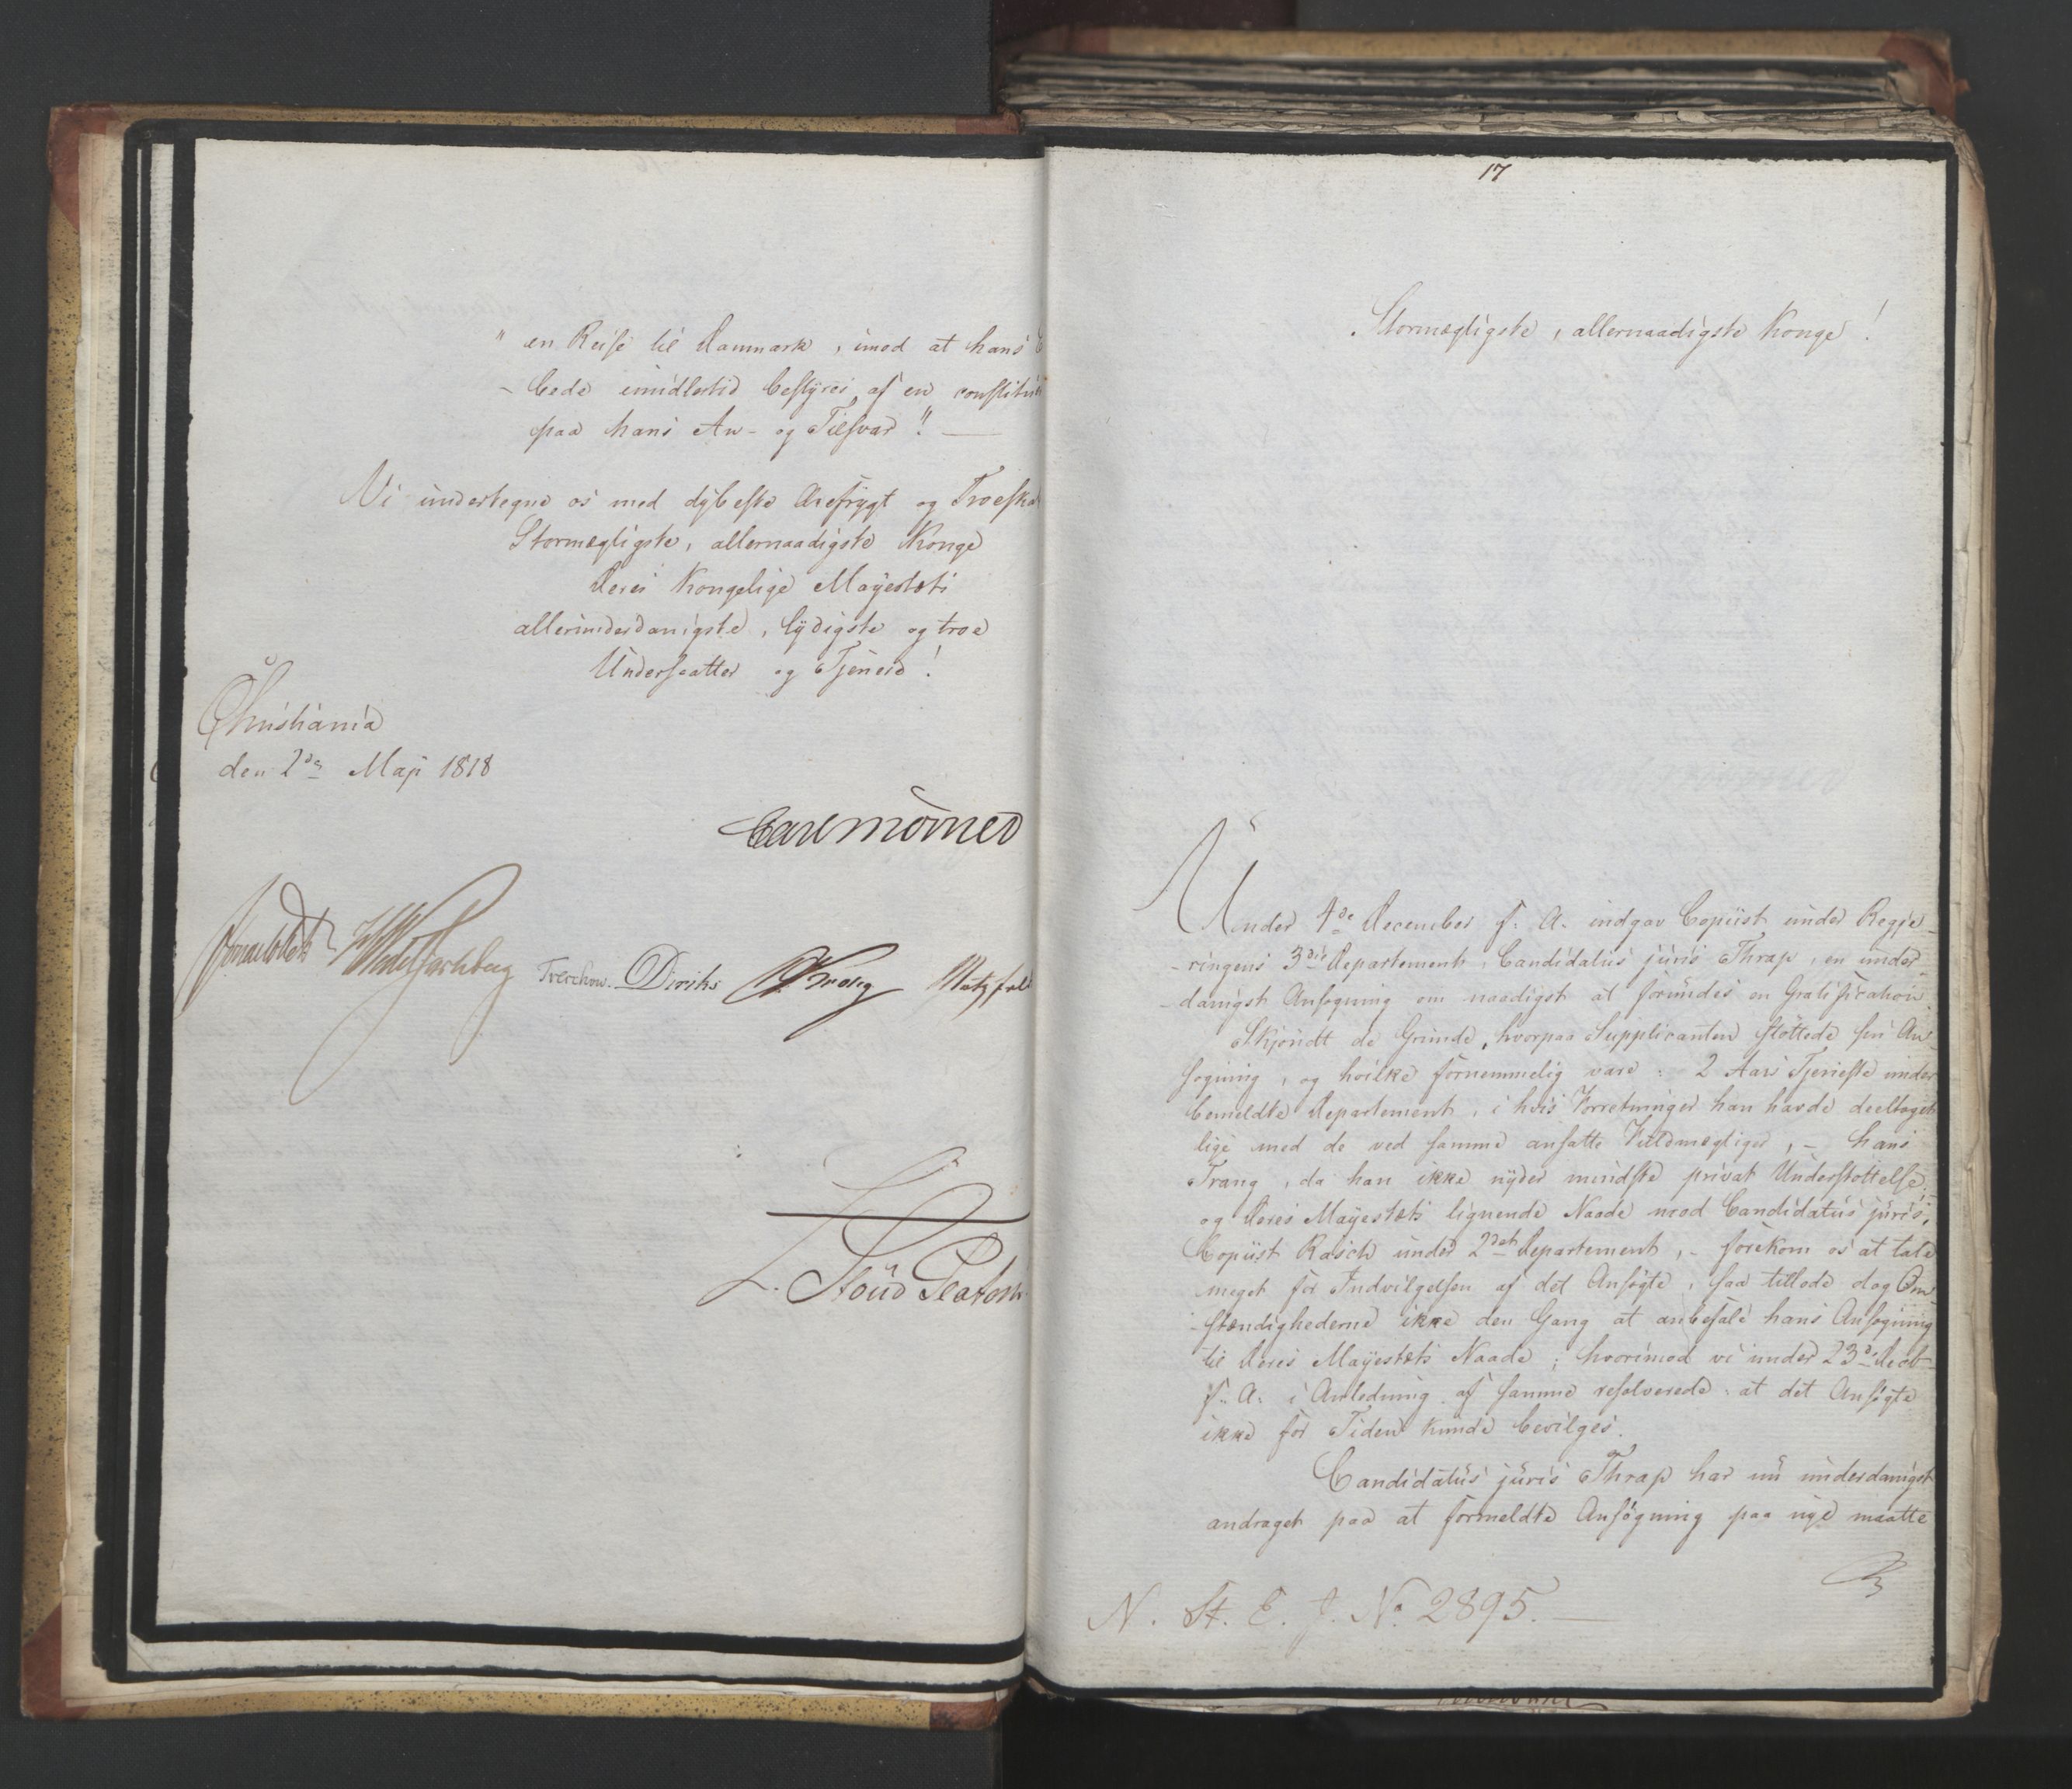 " en Reise til Danmark, imod at hans E
- bede imidlertid bestyres af en constitue
paa hans An- og Tilsvar". —
Vi undertegne os med dybeste Ærefrygt og Troeska
Stormægtigste, allernaadigste Konge
Deres Kongelige Mayestæts
allerunderdanigste, lydigste og troe
Undersaatter og Tjenere!
Christiania
den 2de Maji 1818
Carl Mörner
Sommerfeldt Wedel Jarlsberg Treschow. Diriks Krog Motzfeld
L. Stoud Platou
17
Stormægtigste, allernaadigste Konge!
Under 4de December f. A. indgav Copiist under Regje-
-ringens 3die Departement, Candidatus juris Thrap, en under-
-danigst Ansøgning om naadigst at forundes en Gratification.
Skjøndt de Grunde, hvorpaa Supplicanten støttede sin An-
søgning, og hvilke fornemmelig vare: 2 Aars Tjeneste under
bemeldte Departement, i hvis Forretninger han havde deeltaget
lige med de ved samme ansatte Fuldmægtiger, - hans
Trang, da han ikke nyder mindste privat Understøttelse,
og Deres Mayestæts lignende Naade mod Candidatus juris,
Copiist Rasch under 2det Departement, - forekom os at tale
meget for Indvilgelsen af det Ansøgte, saa tillode dog Om-
-stændighederne ikke den Gang at anbefale hans Ansøgning
til Deres Mayestæts Naade; hvorimod vi under 23de Decb-
f. A. i Anledning af samme resolverede: at det Ansøgte
ikke for Tiden kunde bevilges.
Candidatus juris Thrap har nu underdanigst
andraget paa at formeldte Ansøgning paa nye maatte
N. St. E. J. No. 2895. —